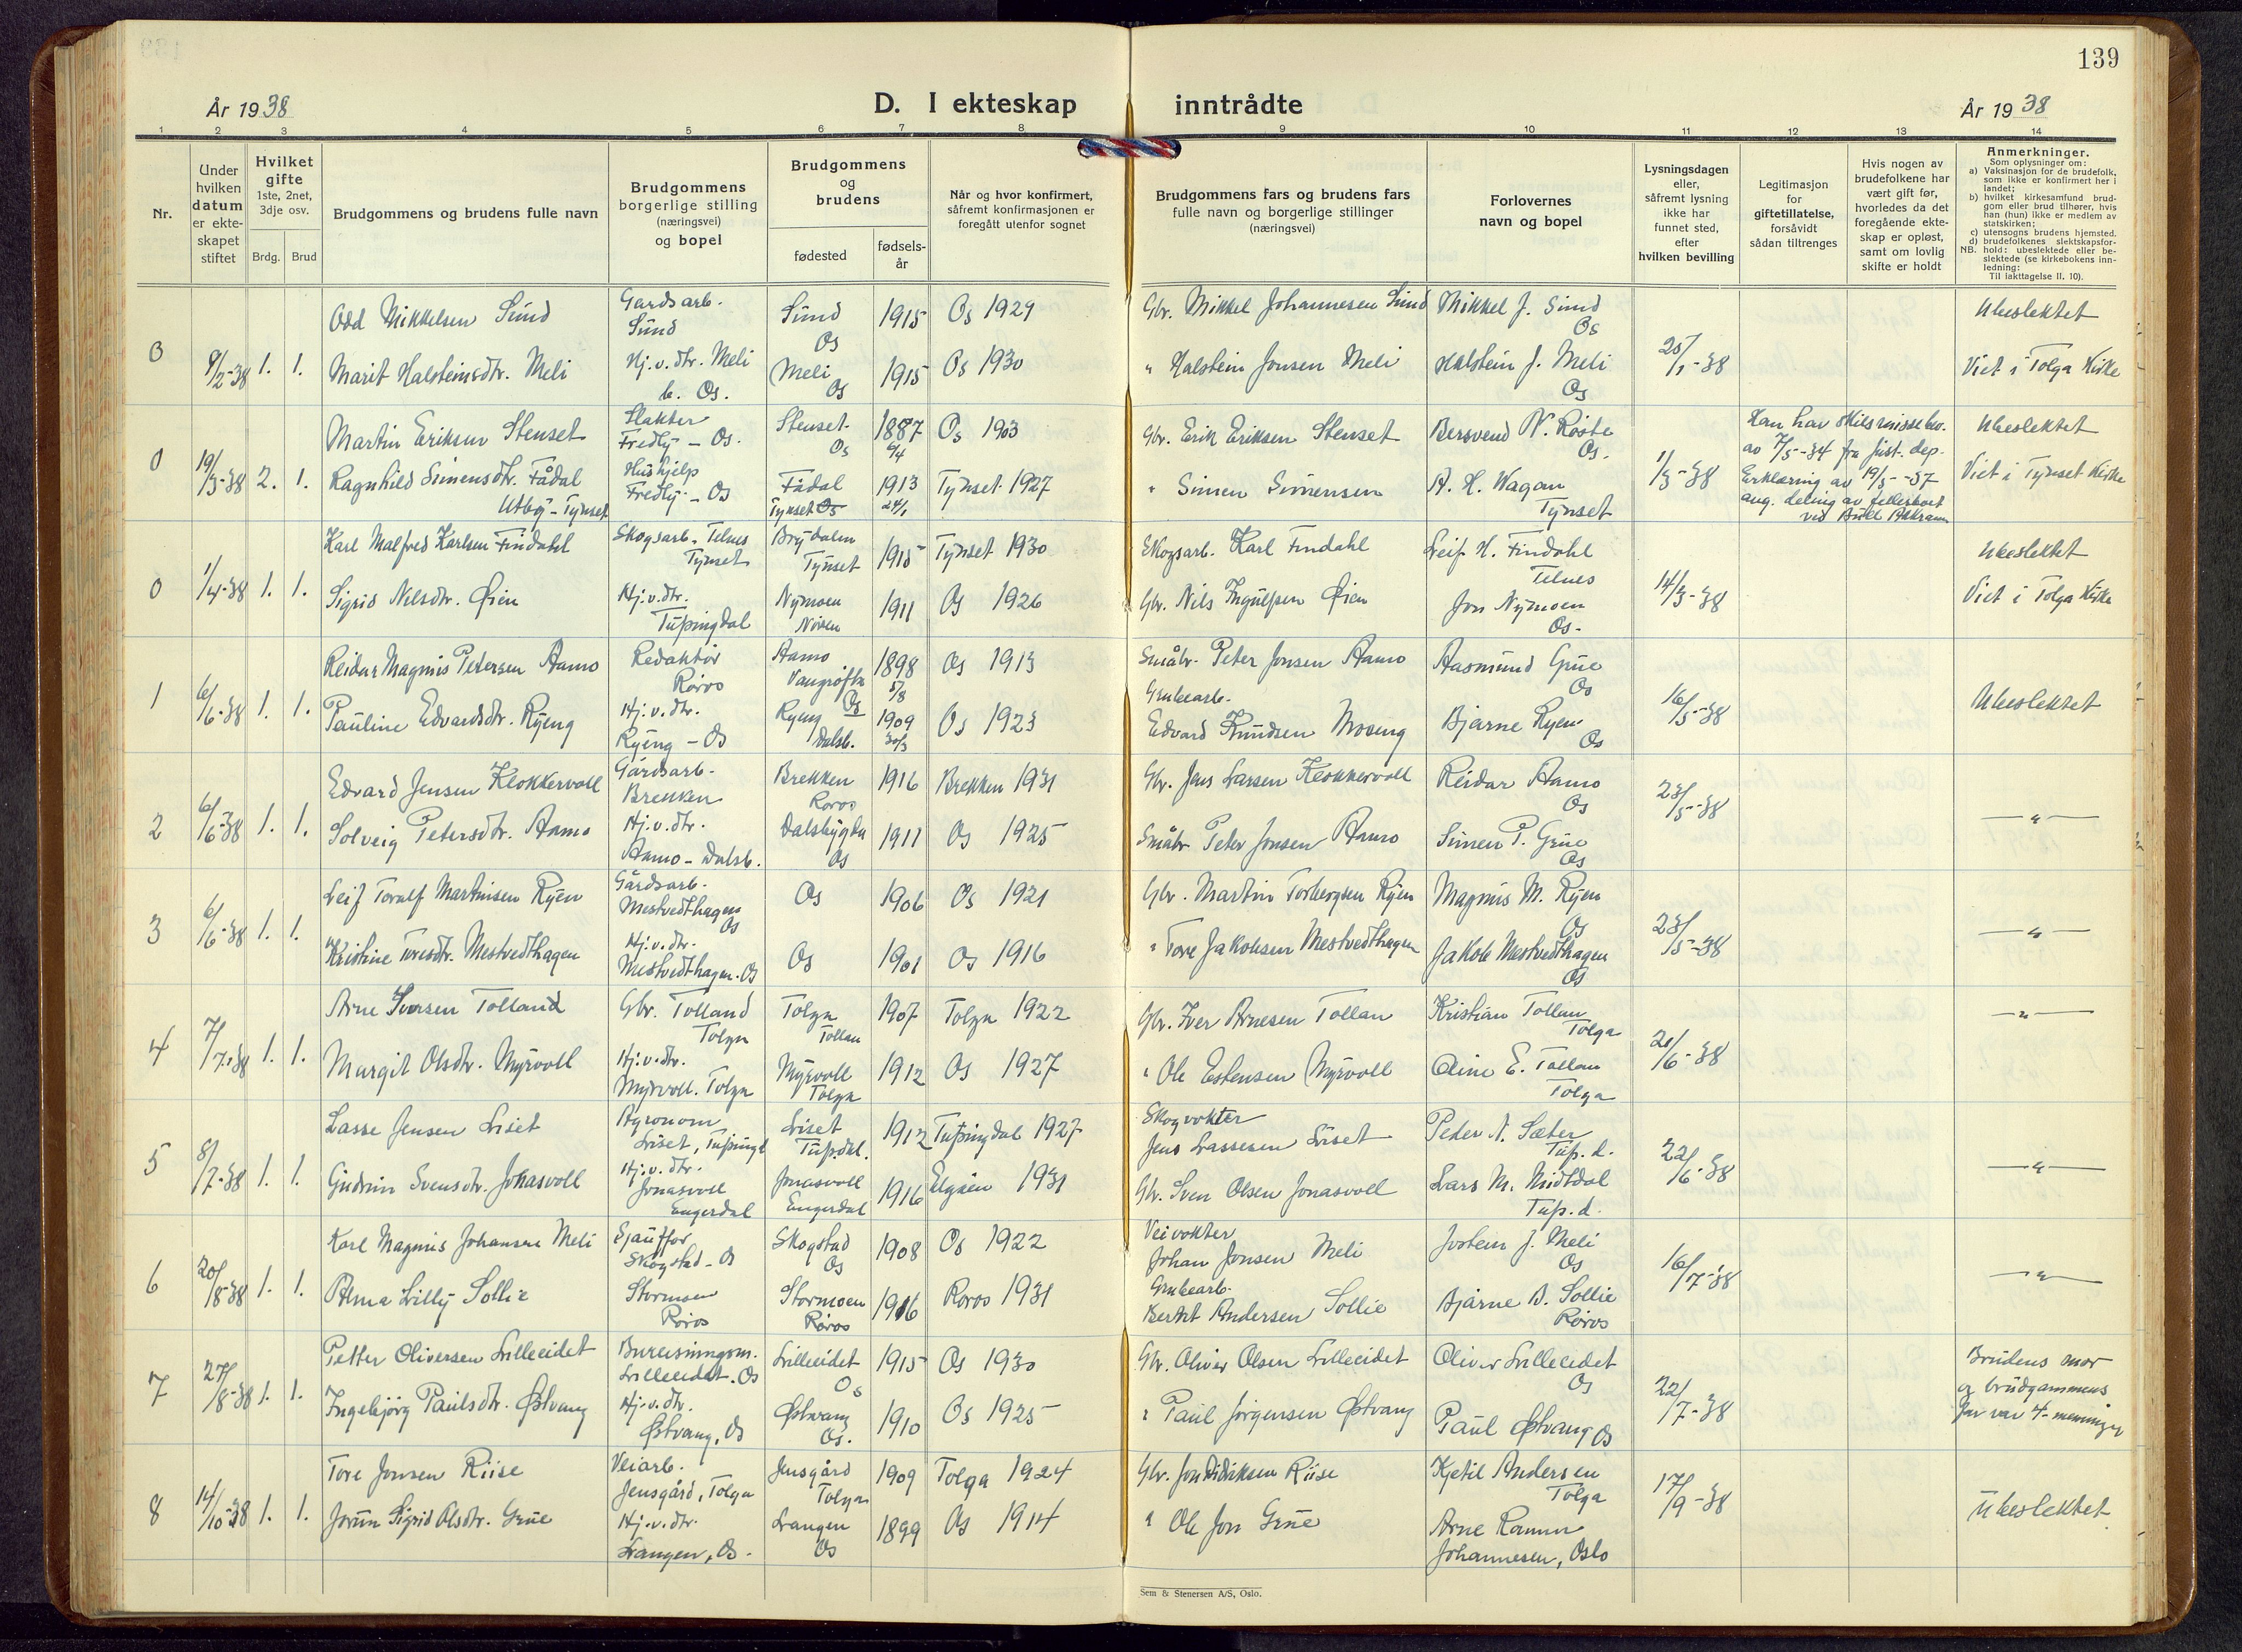 139
År 1938
D. I ekteskap inntrådte
År 1938
1 2 3 4 5 6 7 8 9 10 11 12 13 14
Nr.
Under hvilken datum er ekteskapet stiftet
Hvilket gifte 1ste, 2net, 3dje osv.
Brdg. Brud
Brudgommens og brudens fulle navn
Brudgommens borgerlige stilling (næringsvei) og bopel
Brudgommens og brudens
fødested
fødsels-år
Når og hvor konfirmert, såfremt konfirmasjonen er foregått utenfor sognet
Brudgommens fars og brudens fars fulle navn og borgerlige stillinger (næringsvei)
Forlovernes navn og bopel
Lysningsdagen eller, såfremt lysning ikke har funnet sted, efter hvilken bevilling
Legitimasjon for giftetillatelse, forsåvidt sådan tiltrenges
Hvis nogen av brudefolkene har vært gift før, hvorledes da det foregående ekteskap er opløst, samt om lovlig skifte er holdt
Anmerkninger.
Som oplysninger om:
a) Vaksinasjon for de brudefolk, som ikke er konfirmert her i landet;
b) hvilket kirkesamfund brudgom eller brud tilhører, hvis han (hun) ikke er medlem av statskirken;
c) utensogns brudens hjemsted.
d) brudefolkenes slektskapsforhold: ubeslektede eller beslektede (se kirkebokens innledning:
NB.
Til iakttagelse II. 10).
0 9/2-38 1. 1.
Odd Mikkelsen Sund Gardsarb. Sund Sund Os 1915 Os 1929 Gbr. Mikkel Johannesen Sund Mikkel J. Sund Os 25/1-38 Ubeslektet
Marit Halsteinsdtr. Meli Hj.v.dtr. Meli b. Os. Meli Os 1915 Os 1930 " Halstein Jonsen Meli Halstein J. Meli Os Viet i Tolga Kirke
0 19/3-38 2. 1.
Martin Eriksen Stenset Slakter Fredly - Os. Stenset Os 1887 9/4 Os 1903 Gbr. Erik Eriksen Stenset Bersvend N. Røste Os. 1/3-38 Han har skilsmissebev. av 7/5-34 fra Just. dep. Erklæring av 19/3-37 ang. deling av felleseiet ved Ubeslektet
Ragnhild Simensdtr. Fådal Utby - Tynset Hushjelp Fredly - Os Fådal Tynset 1913 24/1 Tynset 1927 " Simen Simensen A. H. Wagan Tynset Viet i Tynset Kirke
0 1/4-38 1. 1.
Karl Malfred Karlsen Findahl Skogsarb. Telnes Tynset Brydalen Tynset 1915 Tynset 1930 Skogsarb. Karl Findahl Leif H. Findahl Telnes 14/3-38 Ubeslektet
Sigrid Nilsdtr. Øien Hj.v.dtr. Tufsingdal Nymoen 1911 Os 1926 Gbr. Nils Ingulfsen Øien Jon Nymoen Os. Viet i Tolga Kirke
1 6/6-38 1. 1.
Reidar Magnus Petersen Aamo Redaktør Røros Aamo Vangrøfta Os 1898 5/8 Os 1913 Småbr. Peter Jonsen Aamo Aasmund Grue Os 16/5-38 Ubeslektet
Pauline Edvardsdtr. Ryeng Hj.v.dtr. Ryeng - Os Ryeng Dalsb. 1909 30/3 Os 1923 Grubearb. Edvard Knudsen Moseng Bjarne Ryen Os
2 6/6-38 1. 1.
Edvard Jensen Klokkervoll Gårdsarb. Brekken Brekken Røros 1916 Brekken 1931 Gbr. Jens Larsen Klokkervoll Reidar Aamo Os 23/5-38
Solveig Petersdtr. Aamo Hj.v.dtr. Aamo - Dalsb. Dalsbygda Os 1911 Os 1925 Småbr. Peter Jonsen Aamo Simen P. Grue Os —"—
3 6/6-38 1. 1.
Leif Toralf Martinsen Ryen Gårdsarb. Mestvedthagen Os Os 1906 Os 1921 Gbr. Martin Torbergsen Ryen Magnus M. Ryen Os 23/5-38 —"—
Kristine Toresdtr. Mestvedthagen Hj.v.dtr. Mestvedthagen. Os Os 1901 Os 1916 " Tore Jakobsen Mestvedthagen Jakob Mestvedthagen Os
4 7/7-38 1. 1.
Arne Iversen Tolland Gbr. Tolland Tolga Tolga Tollan 1907 Tolga 1922 Gbr. Iver Arnesen Tollan Kristian Tollan Tolga 21/6-38 —"—
Margit Olsdtr. Myrvoll Hj.v.dtr. Myrvoll. Tolga Myrvoll Tolga 1912 Os 1927 " Ole Estensen Myrvoll Oline E. Tollan Tolga
5 8/7-38 1. 1.
Lasse Jensen Liset Agronom Liset, Tufsingd Liset Tufs.dal. 1912 Tufsingdal 1927 Skogvokter Jens Lassesen Liset Peder N. Sæter Tufs. d. 22/6-38 —"—
Gudrun Svensdtr. Jonasvoll Hj.v.dtr. Jonasvoll Engerdal Jonasvoll Engerdal 1916 Elgåen 1931 Gbr. Sven Olsen Jonasvoll Lars M. Midtdal Tufs. d.
6 20/8-38 1. 1.
Karl Magnus Johansen Meli Sjauffør Skogstad - Os Skogstad Os 1908 Os 1922 Veivokter Johan Jonsen Meli Jostein J. Meli Os 16/7-38 —"—
Alma Lilly Sollie Stormoen Røros Stormoen Røros 1916 Røros 1931 Grubearb. Bernt Andersen Sollie Bjarne B. Sollie Røros
7 27/8-38 1. 1.
Petter Oliversen Lilleeidet Bureisningsm. Lilleeidet. Os Lilleeidet Os 1915 Os 1930 Gbr. Oliver Olsen Lilleeidet Oliver Lilleeidet Os 22/7-38 Brudens mor og brudgommens far var 4-menninger
Ingebjørg Paulsdtr. Østvang Hj.v.dtr. Østvang, Os Østvang Os. 1910 Os 1925 " Paul Jørgensen Østvang Paul Østvang Os
8 14/10-38 1. 1.
Tore Jonsen Riise Veiarb. Jensgård, Tolga Jensgård Tolga 1909 Tolga 1924 Gbr. Jon Didriksen Riise Kjetil Andersen Tolga 17/9-38
Jorun Sigrid Olsdtr. Grue Hj.v.dtr. Langen, Os. Langen Os 1899 Os 1914 " Ole Jon Grue Arne Johannesen, Oslo Ubeslektet
Sem & Stenersen A/S, Oslo.